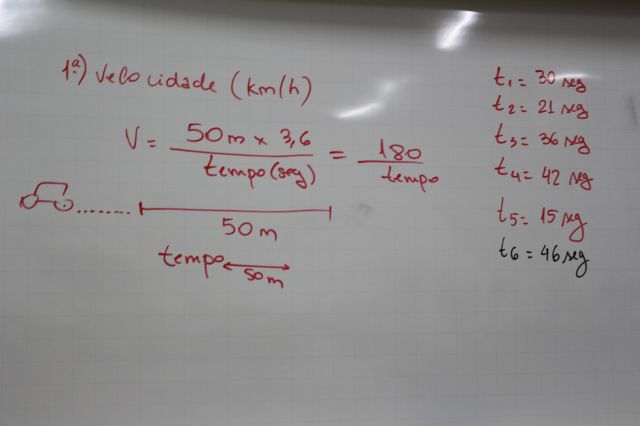 1ª) Velocidade (km/h)
V = 50m × 3,6 / tempo(seg) = 180 / tempo
50m
tempo 50m
t1 = 30 seg
t2 = 21 seg
t3 = 36 seg
t4 = 42 seg
t5 = 15 seg
t6 = 46 seg